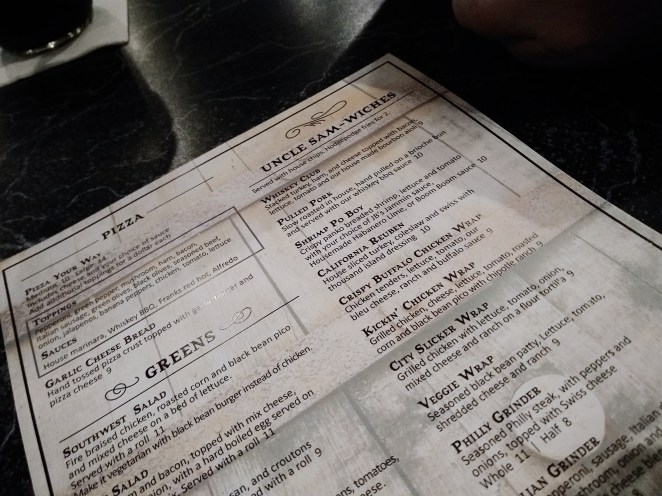 PIZZA
PIZZA YOUR WAY
Medium, cheese 10 Large 14
Add additional toppings for a dollar each
TOPPINGS
Pepperoni, green pepper, mushroom, ham, bacon,
Italian sausage, green olives, black olives, seasoned beef,
onion, jalapenos, banana peppers, chicken, tomato, lettuce
SAUCES
House marinara, Whiskey BBQ, Franks red hot, Alfredo
GARLIC CHEESE BREAD
Hand tossed pizza crust topped with garlic and
pizza cheese 9
GREENS
SOUTHWEST SALAD
Fire braised chicken, roasted corn and black bean pico
and mixed cheese on a bed of lettuce.
Served with a roll 11
Make it vegetarian with black bean burger instead of chicken.
SALAD
and bacon, topped with mix cheese,
onion, with a hard boiled egg served on
with a roll 11
and croutons
with a roll 9
tomatoes,
cheese.
UNCLE SAM-WICHES
Served with house chips. Hodgepodge fries for 2.
WHISKEY CLUB
Stacked turkey, ham, and cheese topped with bacon,
lettuce, tomato and our house made bourbon aioli 9
PULLED PORK
Slow roasted in house, hand pulled on a brioche bun
and served with our whiskey bbq sauce 10
SHRIMP PO BOY
Crispy panko breaded shrimp, lettuce and tomato
with your choice of JB's Jammin sauce,
Housemade Habanero Lime, or Boom Boom sauce 10
CALIFORNIA REUBEN
House sliced turkey, coleslaw and swiss with
thousand island dressing 10
CRISPY BUFFALO CHICKEN WRAP
Chicken tenders, lettuce, tomato, our
bleu cheese, ranch and buffalo sauce 9
KICKIN' CHICKEN WRAP
Grilled chicken, cheese, lettuce, tomato, roasted
corn and black bean pico with chipotle ranch 9
CITY SLICKER WRAP
Grilled chicken with lettuce, tomato, onion,
mixed cheese and ranch on a flour tortilla 9
VEGGIE WRAP
Seasoned black bean patty, lettuce, tomato,
shredded cheese and ranch 9
PHILLY GRINDER
Seasoned Philly steak, with peppers and
onions, topped with Swiss cheese
Whole 11 Half 8
GRINDER
sausage, Italian